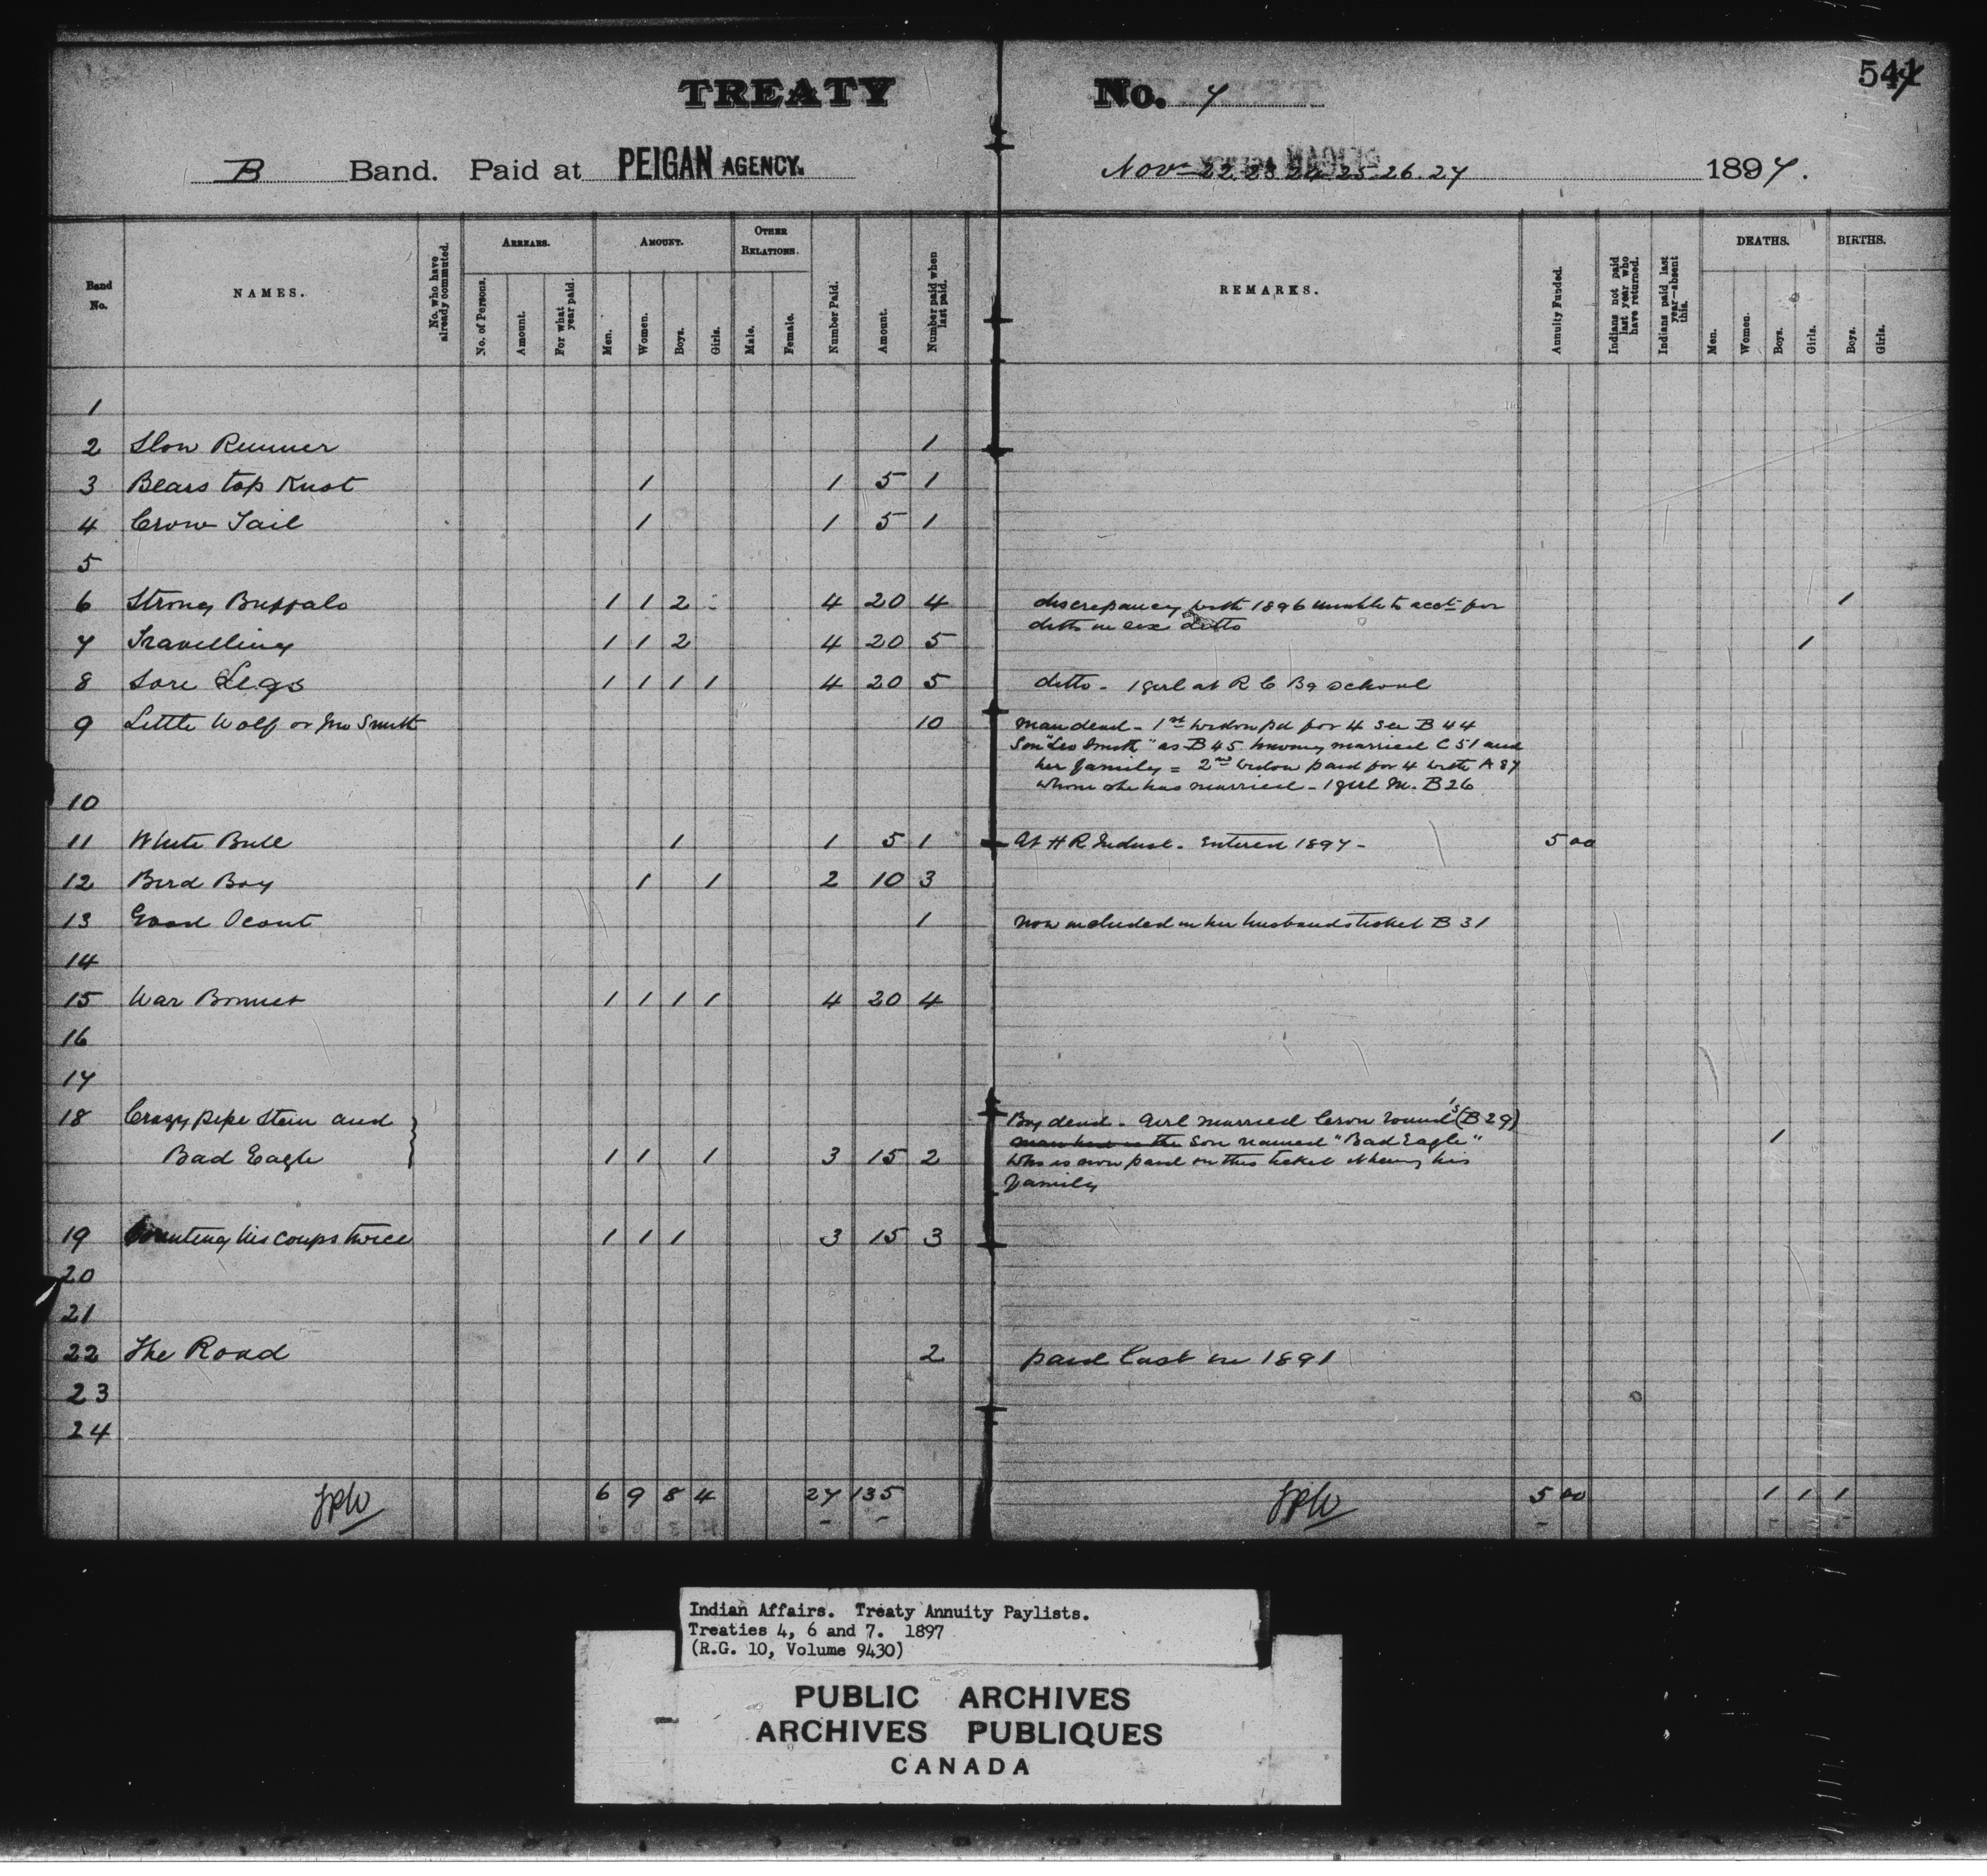 TREATY No. 7
B Band. Paid at PEIGAN AGENCY. Nov 22 23 24 25 26.27 1897.
Band No.
NAMES.
No. who have already commuted.
ARREARS.
No. of Persons.
Amount.
For what year paid.
AMOUNT.
Men.
Women.
Boys.
Girls.
OTHER RELATIONS.
Male.
Female.
Number Paid.
Amount.
Number paid when last paid.
REMARKS.
Annuity Funded.
Indians not paid last year who have returned.
Indians paid last year—absent this.
DEATHS.
Men.
Women.
Boys.
Girls.
BIRTHS.
Boys.
Girls.
1
2 Slow Runner 1
3 Bears top Knot 1 1 5 1
4 Crow Tail 1 1 5 1
5
6 Strong Buffalo 1 1 2 4 20 4 discrepancy with 1896 unable to acct for 1
ditto in sex ditto
7 Travelling 1 1 2 4 20 5 1
8 Sore Legs 1 1 1 1 4 20 5 ditto - 1 girl at R C Bg school
9 Little Wolf or Jno Smith 10 man dead - 1st widow pd for 4 see B 44
Son "Leo Smith" as B 45 having married C 51 and
her family = 2nd widow paid for 4 with A 87
whom she has married - 1 girl M. B 26
10
11 White Bull 1 1 5 1 At H R Indust. Entered 1897 - 5 00
12 Bird Boy 1 1 2 10 3
13 Good Scout 1 now included in her husbands ticket B 31
14
15 War Bonnet 1 1 1 1 4 20 4
16
17
18 Crazy pipe Stem and Boy dead. Girl married Crow Round's (B 29) 1
Bad Eagle 1 1 1 3 15 2 son named "Bad Eagle"
who is now paid on this ticket his
family
19 Counting his coups twice 1 1 1 3 15 3
20
21
22 The Road 2 paid last in 1891
23
24
6 9 8 4 27 135 5 00 1 1 1
Indian Affairs. Treaty Annuity Paylists.
Treaties 4, 6 and 7. 1897
(R.G. 10, Volume 9430)
PUBLIC ARCHIVES
ARCHIVES PUBLIQUES
CANADA